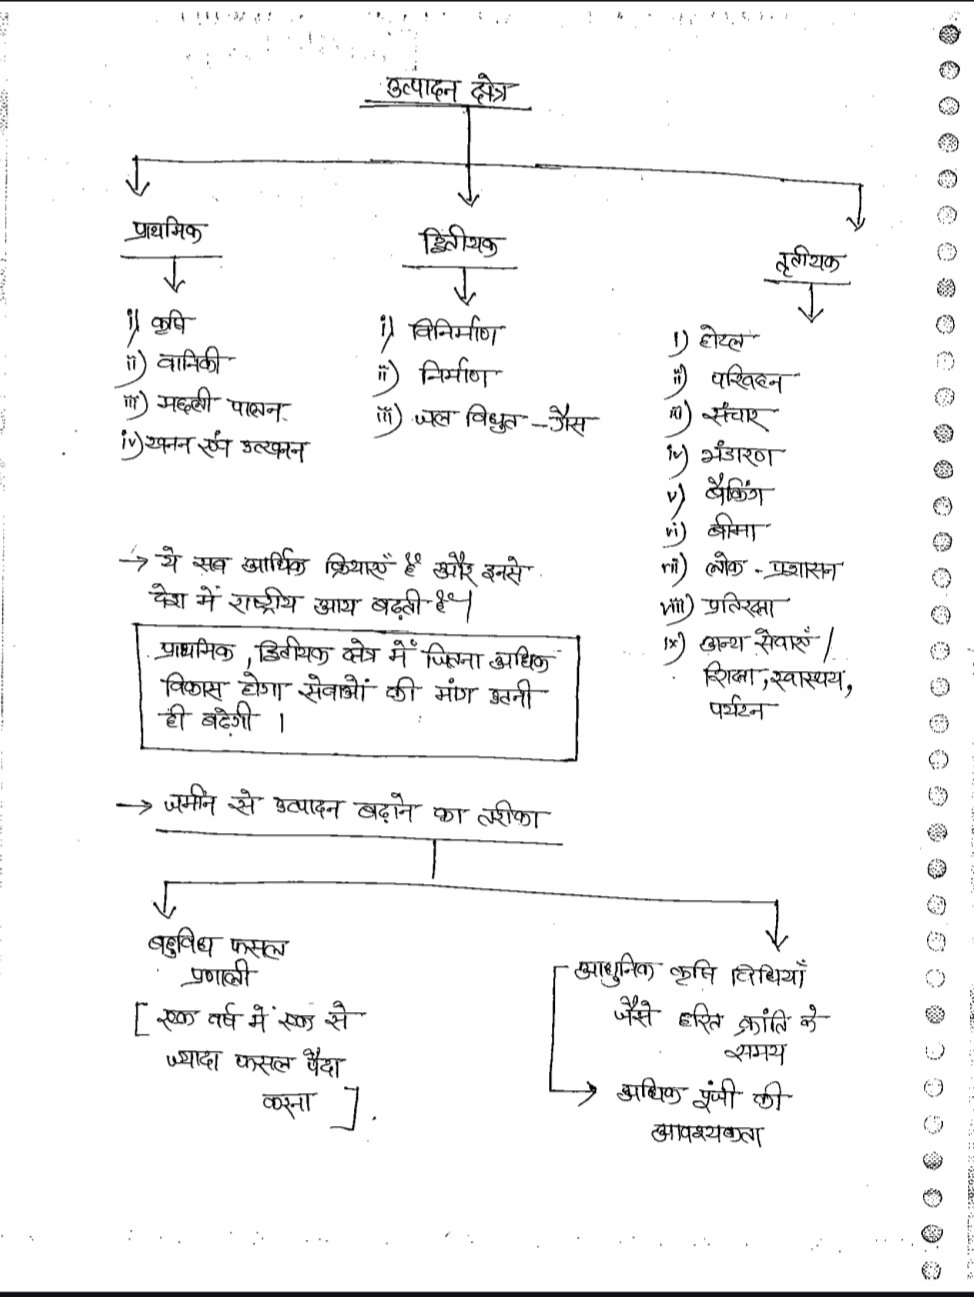 उत्पादन क्षेत्र
प्राथमिक
i) कृषि
ii) वानिकी
iii) मछली पालन
iv) खनन एवं उत्खनन
द्वितीयक
i) विनिर्माण
ii) निर्माण
iii) जल विधुत - गैस
तृतीयक
i) होटल
ii) परिवहन
iii) संचार
iv) भंडारण
v) बैंकिंग
vi) बीमा
vii) लोक - प्रशासन
viii) प्रतिरक्षा
ix) अन्य सेवाएँ /
शिक्षा, स्वास्थय,
पर्यटन
→ ये सब आर्थिक क्रियाएँ हैं और इनसे
देश में राष्ट्रीय आय बढ़ती है।
प्राथमिक, द्वितीयक क्षेत्र में जितना अधिक
विकास होगा सेवाओं की मांग उतनी
ही बढ़ेगी ।
→ जमीन से उत्पादन बढ़ाने का तरीका
बहुविध फसल
प्रणाली
[ एक वर्ष में एक से
ज्यादा फसल पैदा
करना ].
आधुनिक कृषि विधियाँ
जैसे हरित क्रांति के
समय
→ अधिक पूंजी की
आवश्यकता